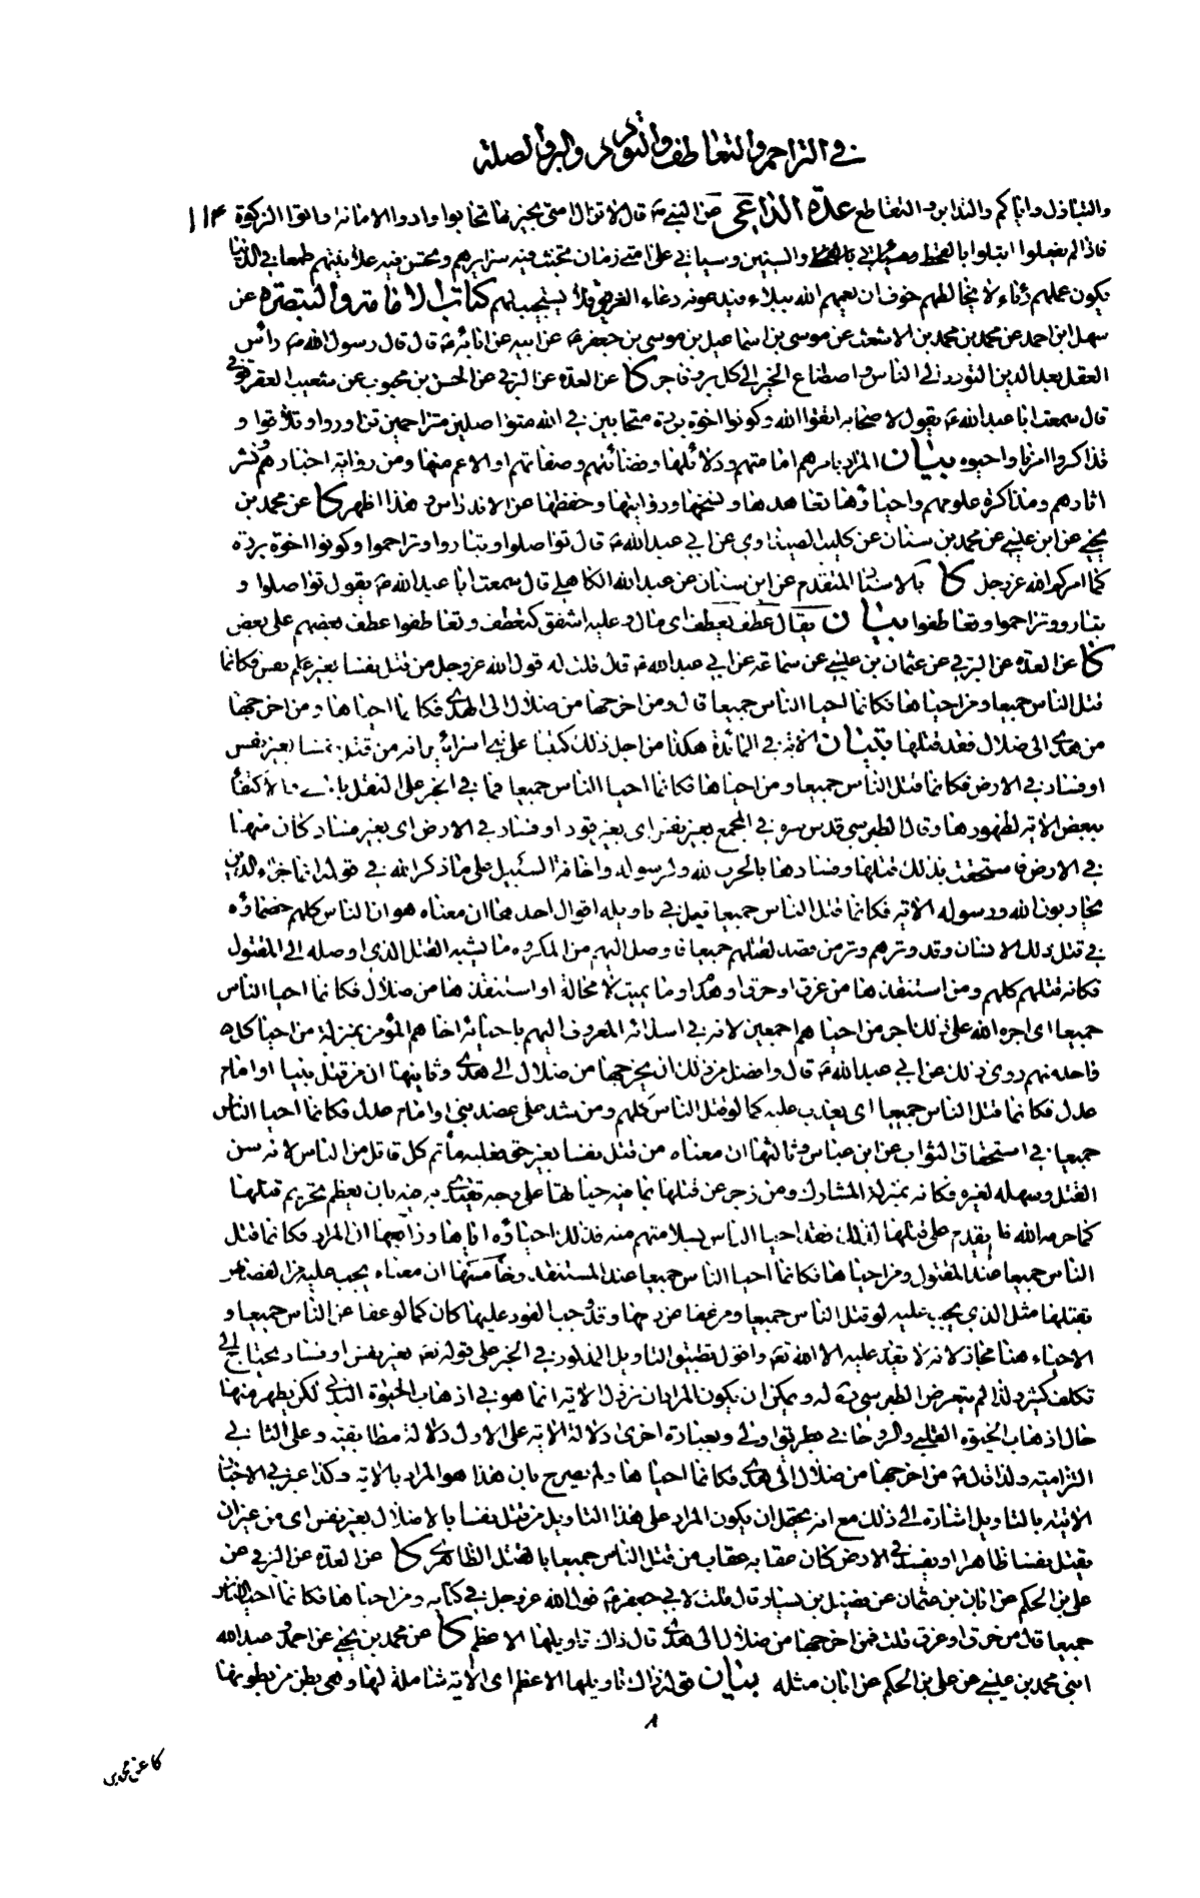 في التراحم والتعاطف والتودد والبر والصلة
والتباذل واياكم والتدابر والتقاطع عدة الداعي عن النبي ص قال لا تزال امتي بخير ما تحابوا وادوا الامانة واتوا الزكوة ١١٤
فاذا لم يفعلوا ابتلوا بالقحط والسنين وسياتي على امتي زمان تخبث فيه سرايرهم وتحسن فيه علانيتهم طمعا في الدنيا
يكون عملهم رئاء لا يخالطهم خوف ان يعمهم الله ببلاء فيدعونه دعاء الغريق فلا يستجيب لهم كتاب الامامة والتبصرة عن
سهل ابن احمد عن محمد بن محمد بن الاشعث عن موسى بن اسماعيل بن موسى بن جعفر ع عن ابيه عن ابائه ع قال قال رسول الله ص رأس
العقل بعد الدين التودد الى الناس واصطناع الخير الى كل بر وفاجر كا عن العدة عن البرقي عن الحسن بن محبوب عن شعيب العقرقوفي
قال سمعت ابا عبد الله ع يقول لاصحابه اتقوا الله وكونوا اخوة بررة متحابين في الله متواصلين متراحمين تزاوروا وتلاقوا و
تذاكروا امرنا واحيوه بيان المراد بامرهم امامتهم ودلائلها وفضائلهم وصفاتهم او الاعم منها ومن رواية اخبارهم ونشر
اثارهم ومذاكرة علومهم واحياؤها تعاهدها ونسخها وروايتها وحفظها عن الاندراس وهذا اظهر كا عن محمد بن
يحيى عن ابن عيسى عن محمد بن سنان عن كليب الصيداوي عن ابي عبد الله ع قال تواصلوا وتباروا وتراحموا وكونوا اخوة بررة
كما امركم الله عز وجل كا بالاسناد المتقدم عن ابن سنان عن عبد الله الكاهلي قال سمعت ابا عبد الله ع يقول تواصلوا و
تباروا وتراحموا وتعاطفوا بيان يقال عطف يعطف اي مال وعليه اشفق كتعطف وتعاطفوا عطف بعضهم على بعض
كا عن العدة عن البرقي عن عثمان بن عيسى عن سماعة عن ابي عبد الله ع قال قلت له قول الله عز وجل من قتل نفسا بغير نفس فكانما
قتل الناس جميعا ومن احياها فكانما احيا الناس جميعا قال من اخرجها من ضلال الى هدى فكانما احياها ومن اخرجها
من هدى الى ضلال فقد قتلها بيان الاية في المائدة هكذا من اجل ذلك كتبنا على بني اسرائيل انه من قتل نفسا بغير نفس
او فساد في الارض فكانما قتل الناس جميعا ومن احياها فكانما احيا الناس جميعا فما في الخبر على النقل بالمعنى والاكتفاء
ببعض الاية لظهورها وقال الطبرسي قدس سره في المجمع بغير نفس اي بغير قود او فساد في الارض اي بغير فساد كان منها
في الارض فاستحقت بذلك قتلها وفسادها بالحرب لله ولرسوله واخافة السبيل على ما ذكر الله في قوله انما جزاء الذين
يحاربون الله ورسوله الاية فكانما قتل الناس جميعا قيل في تاويله اقوال احدها ان معناه هو ان الناس كلهم خصماؤه
في قتل ذلك الانسان وقد وترهم وتر من قصد لقتلهم جميعا فاوصل اليهم من المكروه ما يشبه القتل الذي اوصله الى المقتول
فكانه قتلهم كلهم ومن استنقذها من غرق او حرق او هدم او ما يميت لا محالة او استنقذها من ضلال فكانما احيا الناس
جميعا اي اجره على الله اجر من احياهم اجمعين لانه في اسدائه المعروف اليهم باحيائه اخاهم المؤمن بمنزلة من احيا كل
واحد منهم روى ذلك عن ابي عبد الله ع قال وافضل من ذلك ان يخرجها من ضلال الى هدى وثانيها ان من قتل نبيا او امام
عدل فكانما قتل الناس جميعا اي يعذب عليه كما لو قتل الناس كلهم ومن شد على عضد نبي او امام عدل فكانما احيا الناس
جميعا في استحقاق الثواب عن ابن عباس وثالثها ان معناه من قتل نفسا بغير حق فعليه مأثم كل قاتل من الناس لانه سن
القتل وسهله لغيره فكانه بمنزلة المشارك ومن زجر عن قتلها بما فيه حياتها على وجه يقتدى به فيه بان يعظم تحريم قتلها
كما حرمه الله فلم يقدم على قتلها لذلك فقد احيا الناس بسلامتهم منه فذلك احياؤه اياها ورابعها ان المراد فكانما قتل
الناس جميعا عند المقتول ومن احياها فكانما احيا الناس جميعا عند المستنقذ وخامسها ان معناه يجب عليه من القصاص
بقتلها مثل الذي يجب عليه لو قتل الناس جميعا ومن عفا عن دمها وقد وجب القود عليها كان كما لو عفا عن الناس جميعا و
الاحياء هنا مجاز لانه لا يقدر عليه الا الله تع واقول تطبيق التاويل المذكور في الخبر على قوله تع بغير نفس او فساد يحتاج الى
تكلف كثير ولذا لم يتعرض الطبرسي ره له ويمكن ان يكون المراد ان نزل الاية انما هو في اذهاب الحيوة البدني لكن يظهر منها
حال اذهاب الحيوة القلبي والروحاني بطريق اولى وبعبارة اخرى دلالة الاية على الاول دلالة مطابقية وعلى الثاني
التزامية ولذا قال ع من اخرجها من ضلال الى هدى فكانما احياها ولم يصرح بان هذا هو المراد بالاية وكذا عبر في الاخبار
الاتية بالتاويل اشارة الى ذلك مع انه يحتمل ان يكون المراد على هذا التاويل من قتل نفسا بالاضلال بغير نفس اي من غير ان
يقتل نفسا ظاهرا او يفسد في الارض كان عقابه عقاب من قتل الناس جميعا بالقتل الظاهري كا عن العدة عن البرقي عن
علي بن الحكم عن ابان بن عثمان عن فضيل بن يسار قال قلت لابي جعفر ع قول الله عز وجل في كتابه ومن احياها فكانما احيا الناس
جميعا قال من حرق او غرق قلت فمن اخرجها من ضلال الى هدى قال ذاك تاويلها الاعظم كا عن محمد بن يحيى عن احمد وعبد الله
ابني محمد بن عيسى عن علي بن الحكم عن ابان مثله بيان قوله ذاك تاويلها الاعظم اي الاية شاملة لها وهي بطن من بطونها
٨
كا عن محمد بن